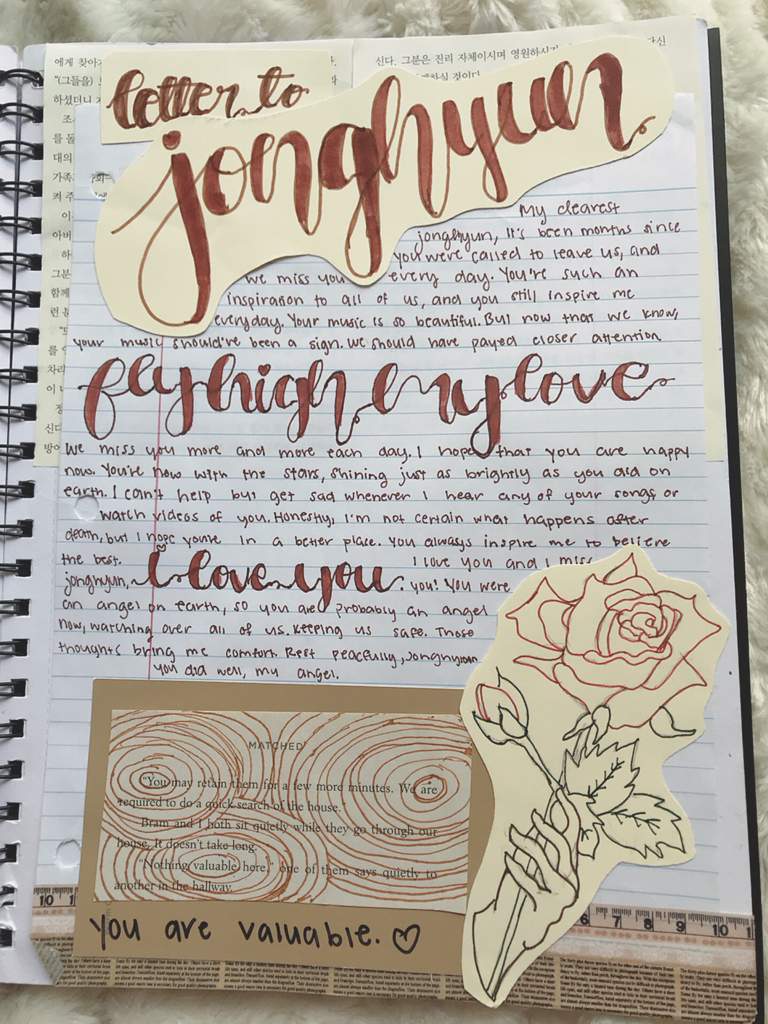 에게 찾아
"(그들을)
하셨더니
신다. 그분은 진리 자체이시며 영원하시
letter to
jonghyun
My dearest
jonghyun, It's been months since
you were called to leave us, and
we miss you every day. You're such an
inspiration to all of us, and you still inspire me
everyday. Your music is so beautiful. But now that we know,
your music should've been a sign. We should have payed closer attention
fly high my love
We miss you more and more each day. I hope that you are happy
now. You're now with the stars, shining just as brightly as you did on
earth. I can't help but get sad whenever I hear any of your songs or
watch videos of you. Honestly, I'm not certain what happens after
death, but I hope you're in a better place. You always inspire me to believe
the best. I love you and I miss
jonghyun, i love you. you! You were
an angel on earth, so you are probably an angel
now, watching over all of us. Keeping us safe. Those
thoughts bring me comfort. Rest peacefully, Jonghyun
You did well, my angel.
MATCHED
"You may retain them for a few more minutes. We are
required to do a quick search of the house."
Bram and I both sit quietly while they go through our
house. It doesn't take long.
"Nothing valuable here," one of them says quietly to
another in the hallway.
10
6 7 8 9 10
You are valuable. ♡